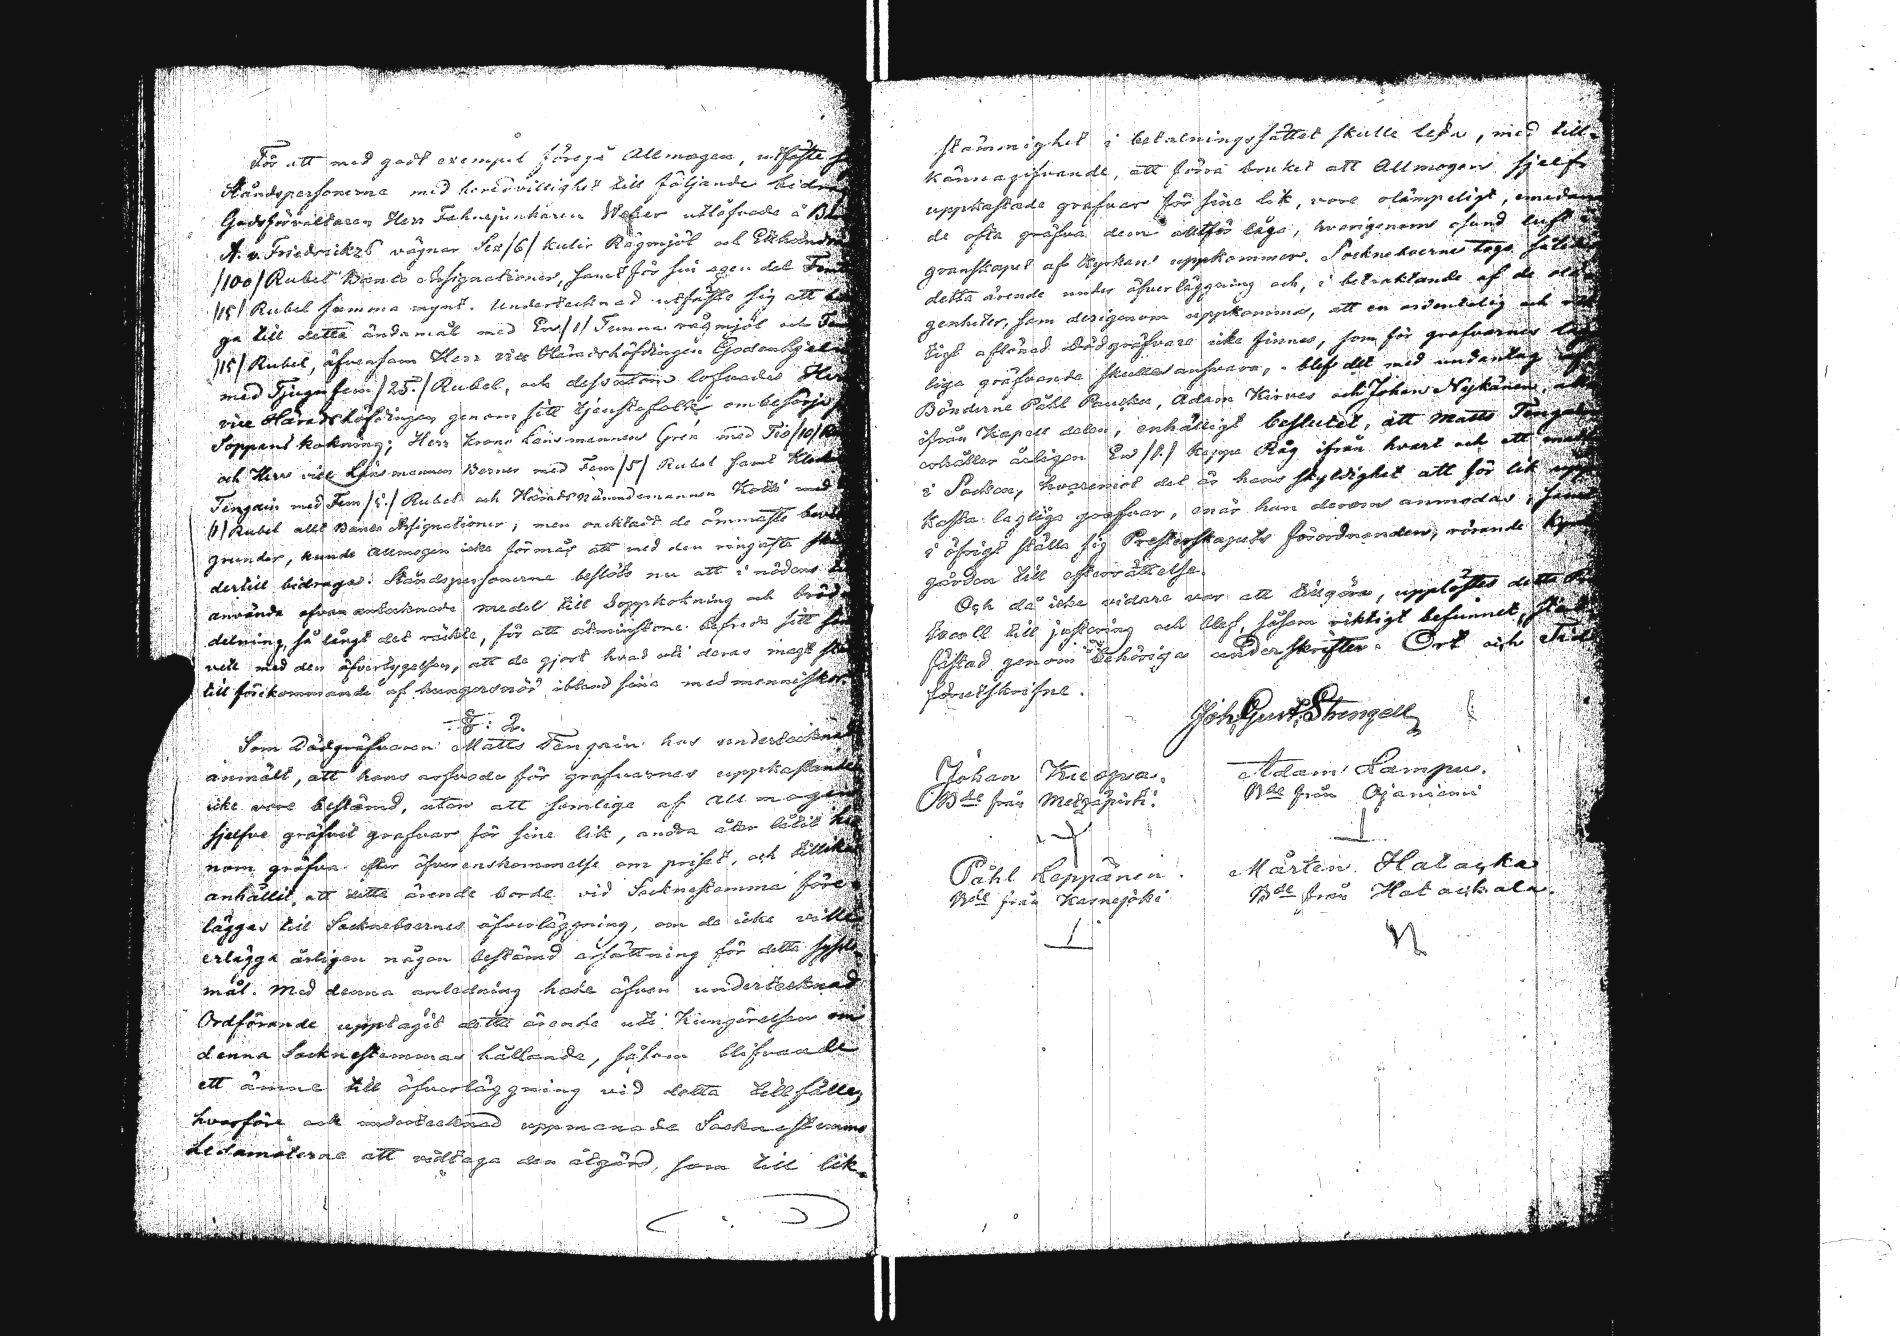 För att med godt exempel föregå Allmogen, utfäste
Ståndspersonerne med beredvillighet till följande
Godsförvaltaren Herr Fahnejunkaren Weber utlofvade å
A. v. Friedrickzs vägnar Sex /6/ kulir Rågmjöl och Etthundra
/100/ Rubel Banco Assignationer, samt för sin egen del
/15/ Rubel samma mynt. Undertecknad utfäste sig att
ga till detta ändamål med En /1/ Tunna rågmjöl och
/15/ Rubel, äfvensom Herr vice Häradshöfdingen Godenhjelm
med Tjugufem /25./ Rubel, och dessutom lofvades
vice Häradshöfdingen genom sitt tjenstefolk ombesörja
Soppans kokning; Herr Krono Länsmannen Grén med Tio /10/
och Herr vice Länsmannen Berner med Fem /5/ Rubel samt
Tengain med Fem /5./ Rubel och Häradsnämndemannen Kotti med
/1/ Rubel allt Banco Assignationer; men oacktadt de ömmaste
grunder, kunde Allmogen icke förmås att med den ringaste
dertill bidraga. Ståndspersonerne beslöto nu att i nödens
använda ofvan antecknade medel till Soppkokning och bröd
delning, så långt det räckte, för att åtminstone befreda sitt
vett med den öfvertygelsen, att de gjort hvad uti deras magt
till förekommande af hungersnöd ibland sina medmenniskor.
§: 2.
Som Dödgräfvaren Matts Tengain hos undertecknad
anmält, att hans arfvode för grafvarnes uppkastande
icke vore bestämd, utan att somliga af Allmogen
sjelfve gräfvit grafvar för sine lik, andra åter låtit
nom gräfva efter öfverenskommelse om priset, och tillika
anhållit, att detta ärende borde vid Sockenstemma före-
läggas till Sockneboernes öfverläggning, om de icke ville
erlägga årligen någon bestämd ersättning för detta syslo-
mål. Med denna anledning hade äfven undertecknad
Ordförande upptagit detta ärende uti Kungörelsen om
denna Socknestemmas hållande, såsom blifvande
ett ämne till öfverläggning vid detta tillfälle,
hvarföre ock undertecknad uppmanade Socknestemmo
Ledamöterne att vidtaga den åtgärd, som till lik-
stämmighet i betalningssättet skulle leda, med till-
kännagifvande, att förra bruket att Allmogen sjelf
uppkastade grafvar för sine lik, vore olämpeligt, emedan
de ofta gräfva dem alltför låga, hvarigenom osund luft i
granskapet af Kyrkan uppkommer. Sockneboerne togo
detta ärende under öfverläggning och, i betraktande af de
genheter, som derigenom uppkommer, att en ordentelig och
tigt aflönad Dödgräfvare icke finnes, som för grafvarnes
liga gräfvande skulle ansvara, blef det med undantag
Bönderne Påhl Pauska, Adam Kirves och Johan Nykänen,
ifrån Kapell delen, enhälligt beslutet, att Matts Tengain
erhåller årligen En /1./ Kappe Råg ifrån hvart och ett
i Socken, hvaremot det är hans skyldighet att för lik
kasta lagliga grafvar, enär han derom anmodas, samt
i öfrigt ställa sig Presterskapets förordnanden, rörande
gården till efterrättelse.
Och då icke vidare var att tillgöra, upplästes detta
tocoll till justering och blef, såsom riktigt befunnet,
fästad genom behöriga underskrifter. Ort och Tid
förutskrifne.
Joh. Gust. Strengell
Johan Kuopsa. Adam Lampu.
Bde från Metsäpirti. Bde från Ojaniemi
Påhl Leppänen. Mårten Hatacka
Bde från Karnejoki Bde från Hatackala.